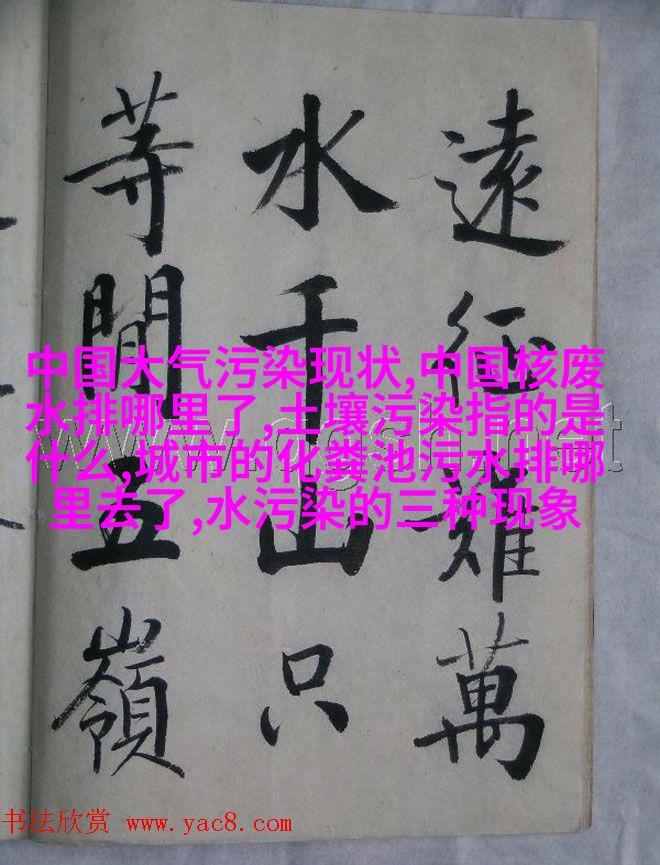 遠征難萬
水千山只
等閒五嶺
中国大气污染现状,中国核废
水排哪里了,土壤污染指的是
什么,城市的化粪池污水排哪
里去了,水污染的三种现象
书法欣赏 www.yac8.com